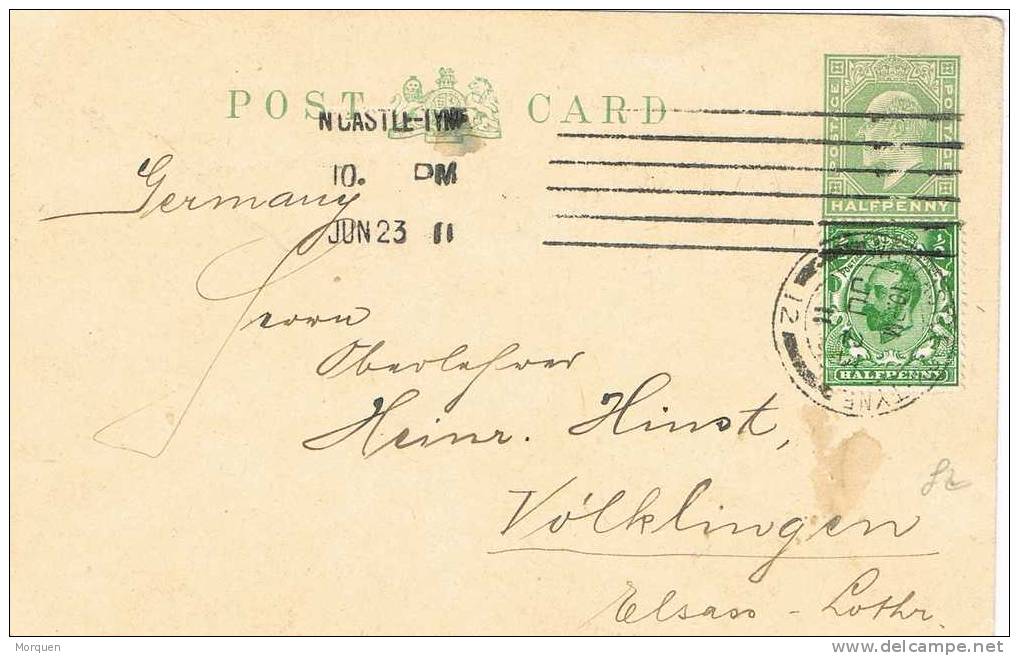 POST CARD
N'CASTLE-TYNE
10. PM
JUN 23 11
POSTAGE
POSTAGE
HALFPENNY
HALFPENNY
12
TYNE
Germany
Herrn
Oberlehrer
Heinr. Hinst,
Völklingen
Elsass - Lothr.
Morquen
delcampe.net